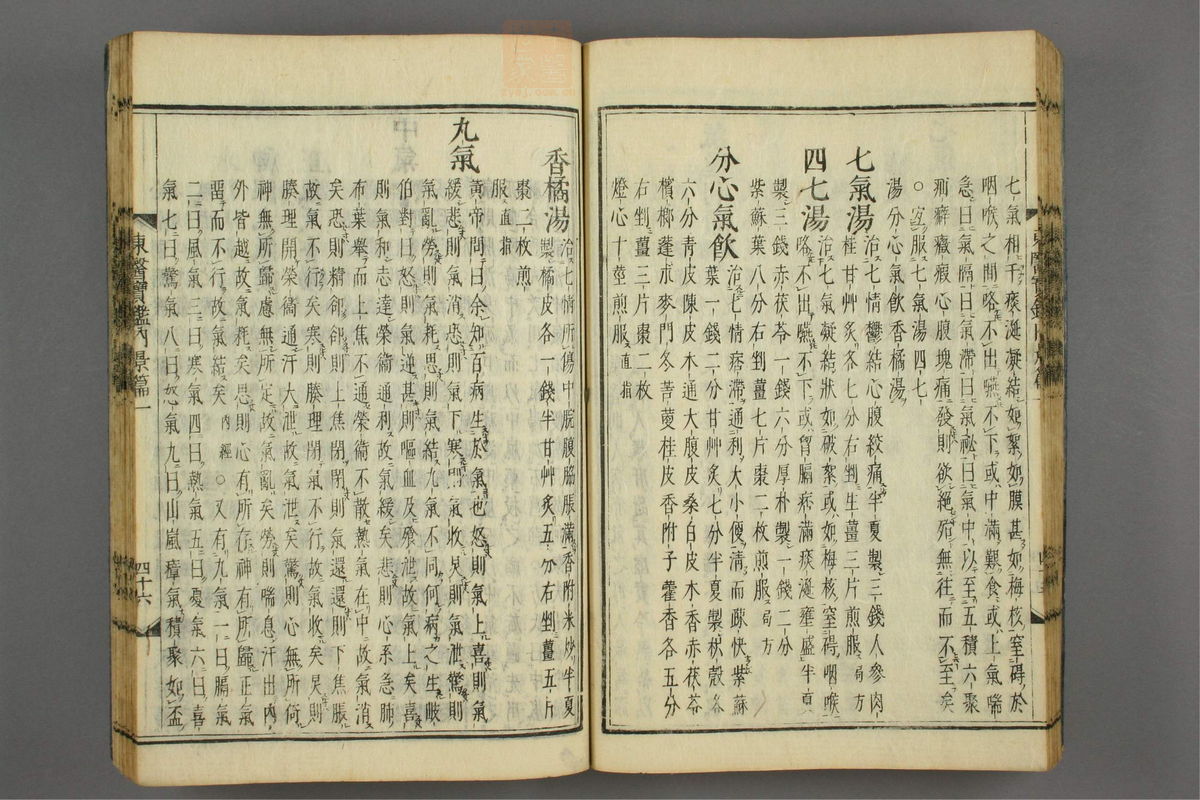 七氣相干痰涎凝結如絮如膜甚如梅核窒碍於
咽喉之間咯不出嚥不下或中滿艱食或上氣喘
急曰氣隔曰氣滯曰氣祕曰氣中以至五積六聚
疝癖癥瘕心腹塊痛發則欲絕殆無往而不至矣
○宜服七氣湯四七
湯分心氣飲香橘湯
七氣湯 治七情鬱結心腹絞痛半夏製三錢人參肉
桂甘艸炙各七分右剉生薑三片煎服局方
四七湯 治七氣凝結狀如破絮或如梅核窒碍咽喉
咯不出嚥不下或胷膈痞滿痰涎壅盛半夏
製三錢赤茯苓一錢六分厚朴製一錢二分
紫蘇葉八分右剉薑七片棗二枚煎服局方
分心氣飮 治七情痞滯通利大小便淸而疎快紫蘇
葉一錢二分甘艸炙七分半夏製枳殼各
六分靑皮陳皮木通大腹皮桑白皮木香赤茯苓
檳榔蓬朮麥門冬桔梗桂皮香附子藿香各五分
右剉薑三片棗二枚
燈心十莖煎服直指
香橘湯 治七情所傷中脘腹脇脹滿香附米炒半夏
製橘皮各一錢半甘艸炙五分右剉薑五片
棗二枚煎
服直指
九氣
黃帝問曰余知百病生於氣也怒則氣上喜則氣
緩悲則氣消恐則氣下寒則氣收炅則氣泄驚則
氣亂勞則氣耗思則氣結九氣不同何病之生岐
伯對曰怒則氣逆甚則嘔血及飱泄故氣上矣喜
則氣和志達榮衛通利故氣緩矣悲則心系急肺
布葉擧而上焦不通榮衛不散熱氣在中故氣消
矣恐則精却却則上焦閉閉則氣還還則下焦脹
故氣不行矣寒則腠理閉氣不行故氣收矣炅則
腠理開榮衛通汗大泄故氣泄矣驚則心無所倚
神無所歸慮無所定故氣亂矣勞則喘息汗出內
外皆越故氣耗矣思則心有所存神有所歸正氣
畱而不行故氣結矣內經○又有九氣一曰膈氣
二曰風氣三曰寒氣四曰熱氣五曰憂氣六曰喜
氣七曰驚氣八曰怒氣九曰山嵐瘴氣積聚如盃
東醫寶鑑內景篇一
四十六